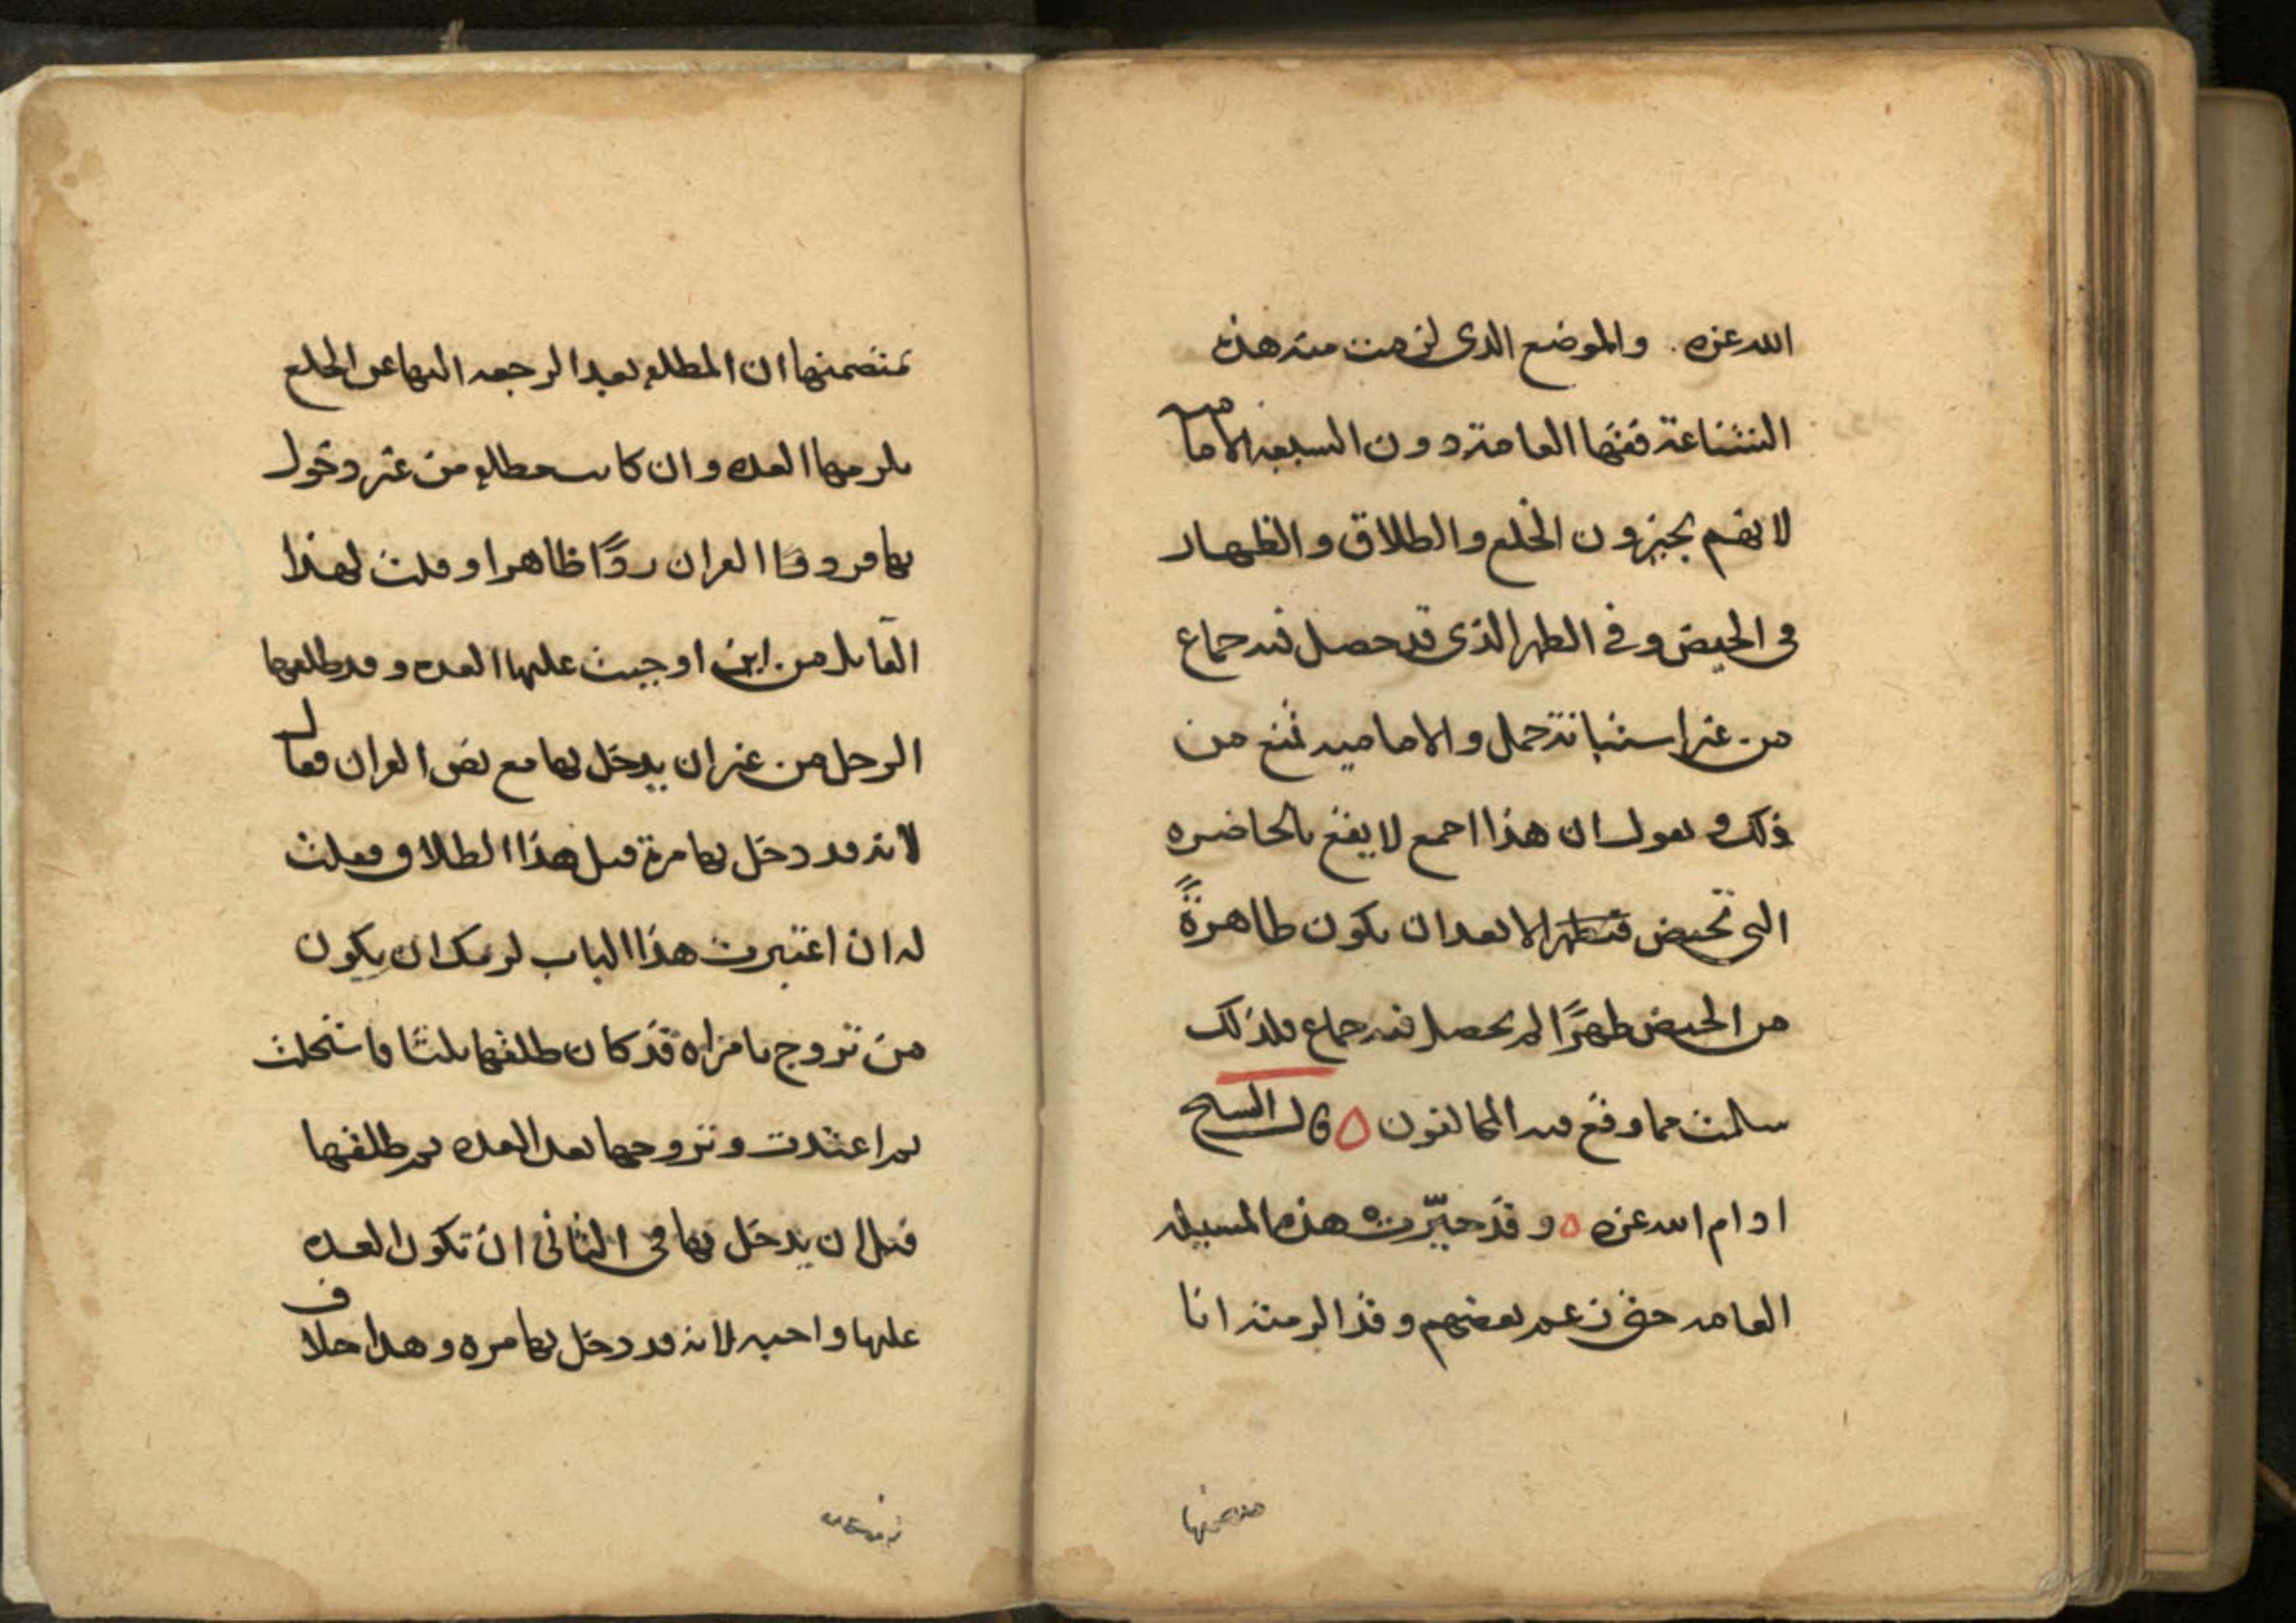 الله عزه . والموضع الذى لزمت منه هذه
الشناعة فقها العامة دون الشيعة الامامية
لانهم يجيزون الخلع والطلاق والظهار
فى الحيض وفي الطهر الذى قد حصل فيه جماع
من غير استبانة حمل والامامية تمنع من
ذلك وتقول ان هذا اجمع لا يقع بالحاضرة
التى تحيض وتطهر الا بعد ان تكون طاهرةً
من الحيض طهرًا لم يحصل فيه جماع فلذلك
سلمت مما وقع فيه المخالفون ٥ قال الشيخ
ادام الله عزه ٥ وقد حيّرت هذه المسيلة
العامة حتى زعم بعضهم وقد الزمته انا
متضمنها
تمتضمنها ان المطلقة بعد الرجعة اليها عن الخلع
يلزمها العدة وان كانت مطلقة من غير دخول
بها فرد القران ردًا ظاهرا وقلت لهذا
القايل من اين اوجبت عليها العدة وقد طلقها
الرجل من غير ان يدخل بها مع نص القران فقال
لانه قد دخل بها مرة قبل هذا الطلاق فقلت
له ان اعتبرت هذا الباب لزمك ان يكون
من تزوج بامراه قد كان طلقها ثلثا فاستحلت
ثم اعتدت وتزوجها بعد العدة ثم طلقها
قبل ان يدخل بها فى الثانى ان تكون العدة
عليها واجبة لانه قد دخل بها مره وهذا خلاف